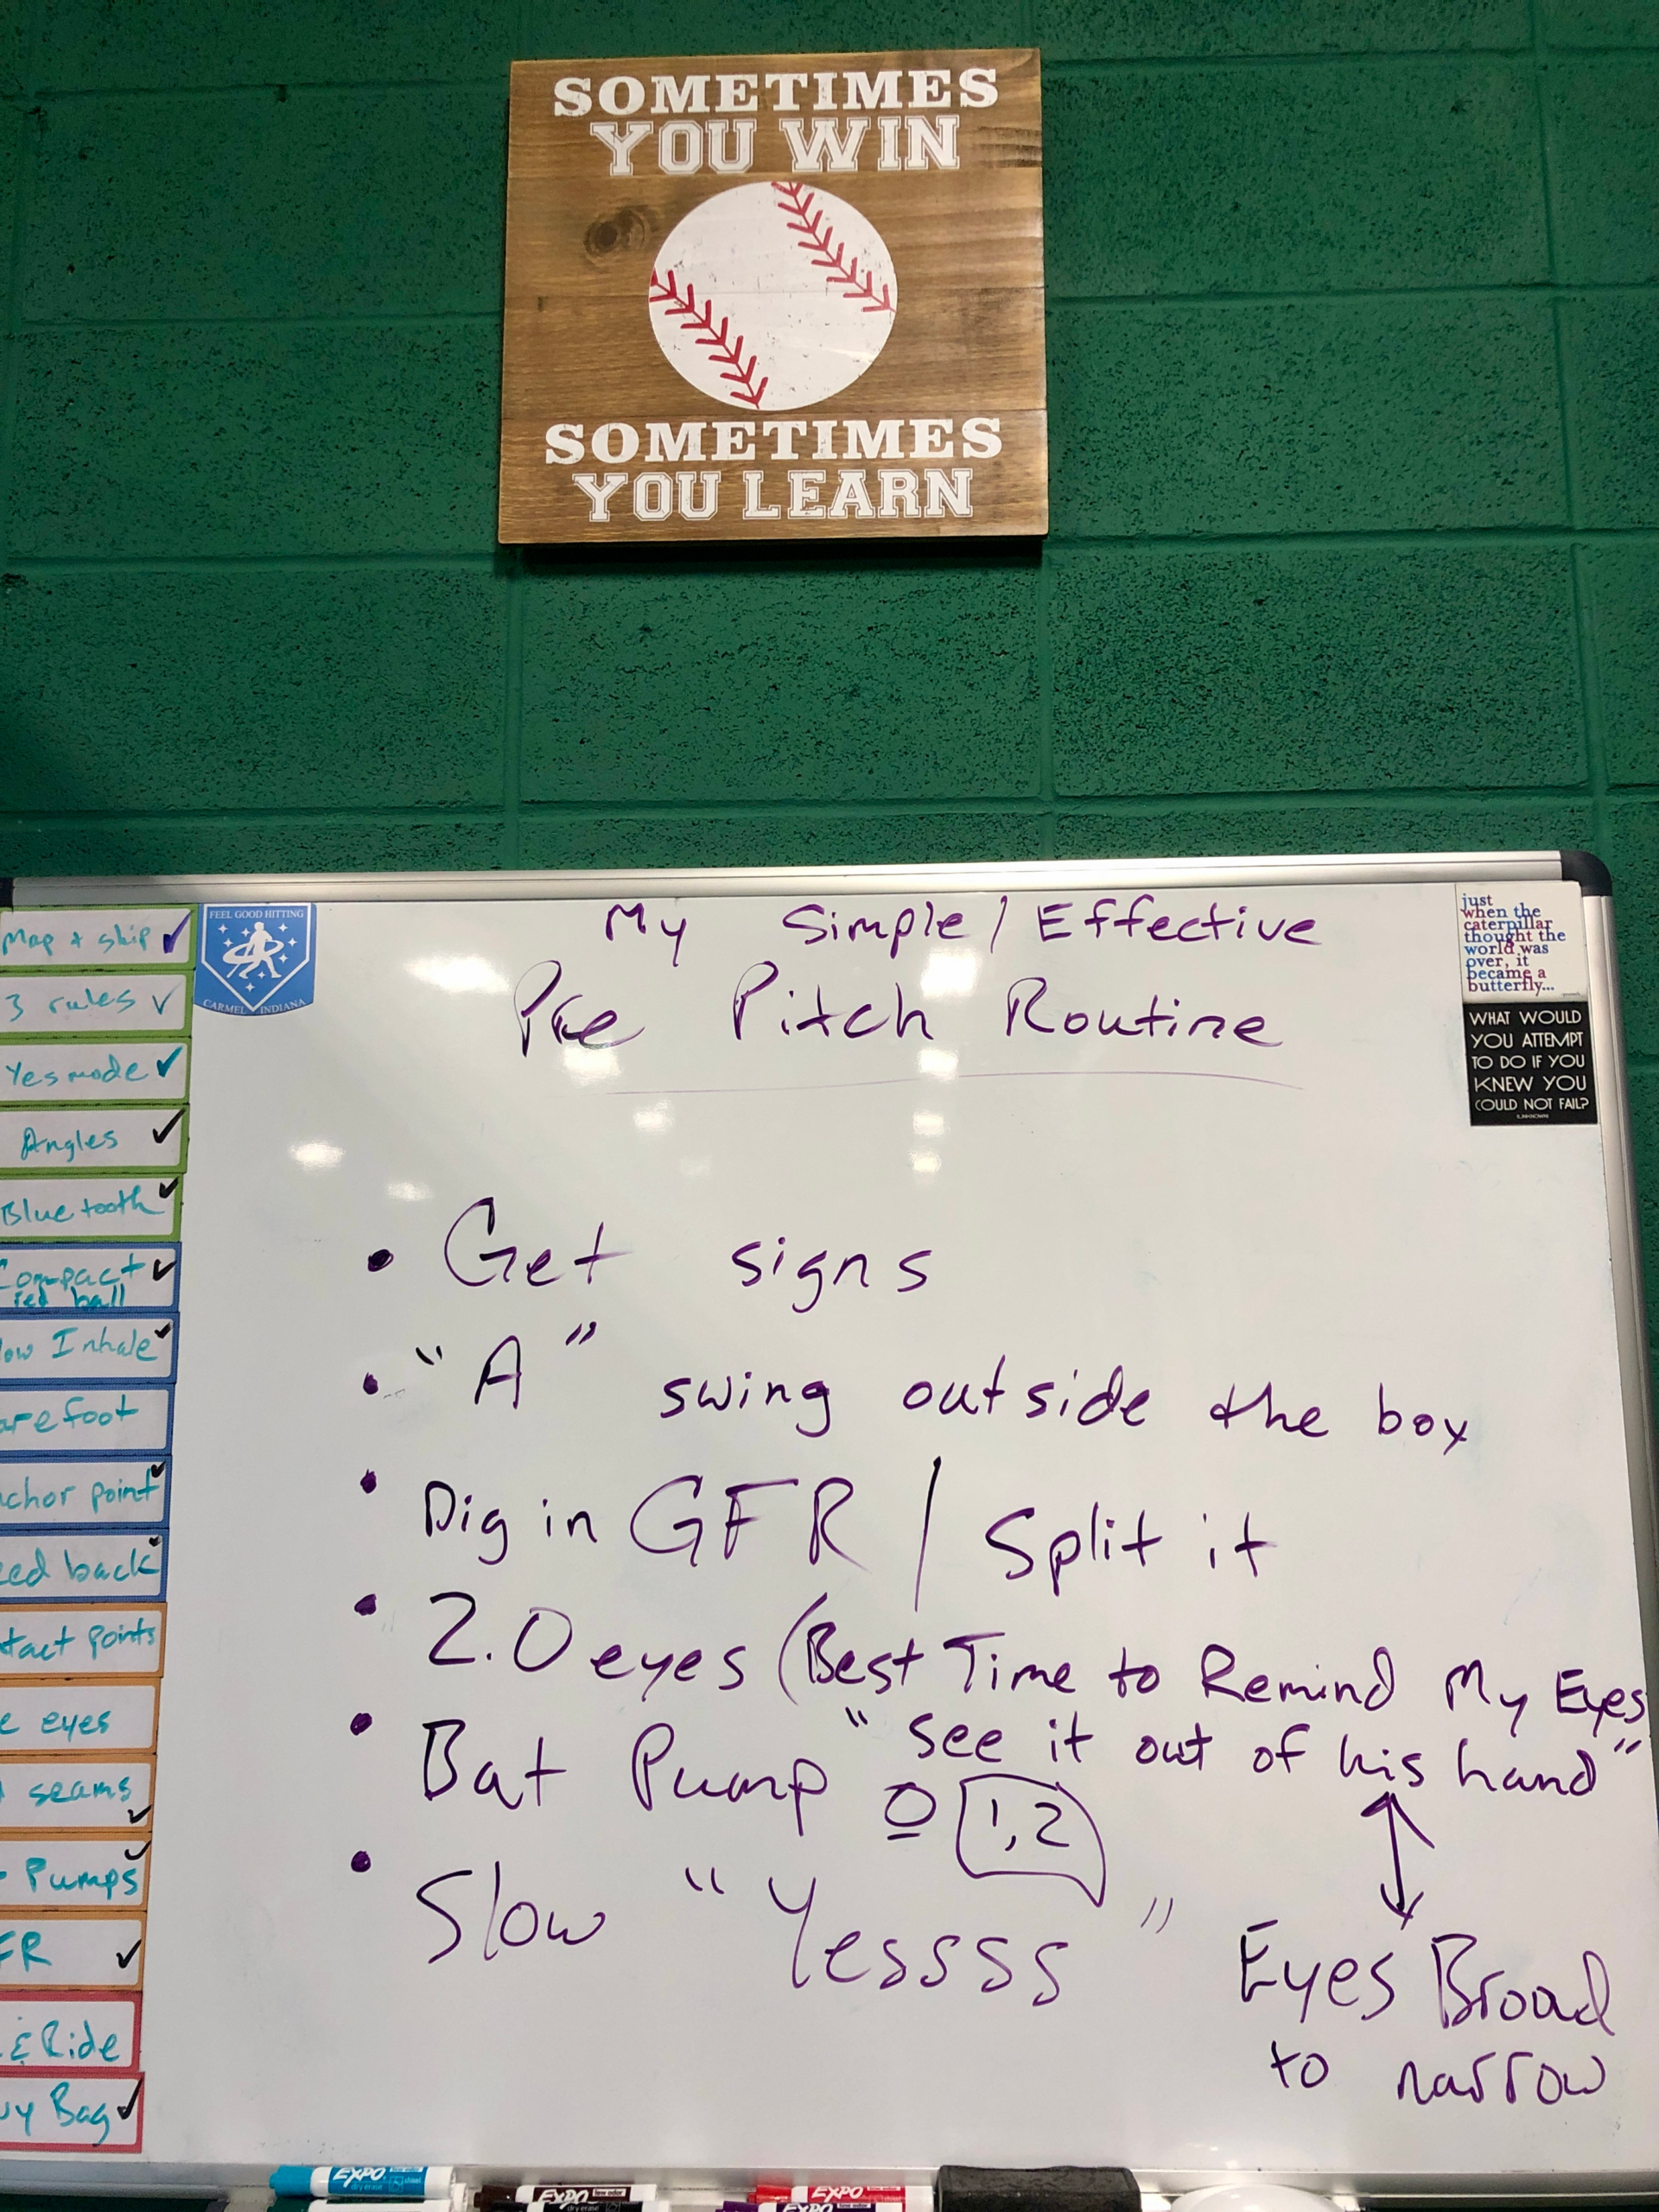 SOMETIMES
YOU WIN
SOMETIMES
YOU LEARN
My Simple/Effective
Pre Pitch Routine
• Get signs
• "A" swing outside the box
• Dig in GFR / Split it
• 2.0 eyes (Best Time to Remind My Eyes
"see it out of his hand"
• Bat Pump 0 1,2
• Slow "Yessss"
Eyes Broad
to narrow
Map + skip ✓
3 rules ✓
Yes mode ✓
Angles ✓
Blue tooth ✓
Compact ✓
red ball
ow Inhale ✓
arefoot
chor point ✓
ed back ✓
tact points
e eyes
seams ✓
Pumps ✓
FR ✓
& Ride
vy Bag ✓
FEEL GOOD HITTING
CARMEL INDIANA
just
when the
caterpillar
thought the
world was
over, it
became a
butterfly...
WHAT WOULD
YOU ATTEMPT
TO DO IF YOU
KNEW YOU
COULD NOT FAIL?
EXPO
dry erase
EXPO
dry erase
EXPO
EXPO